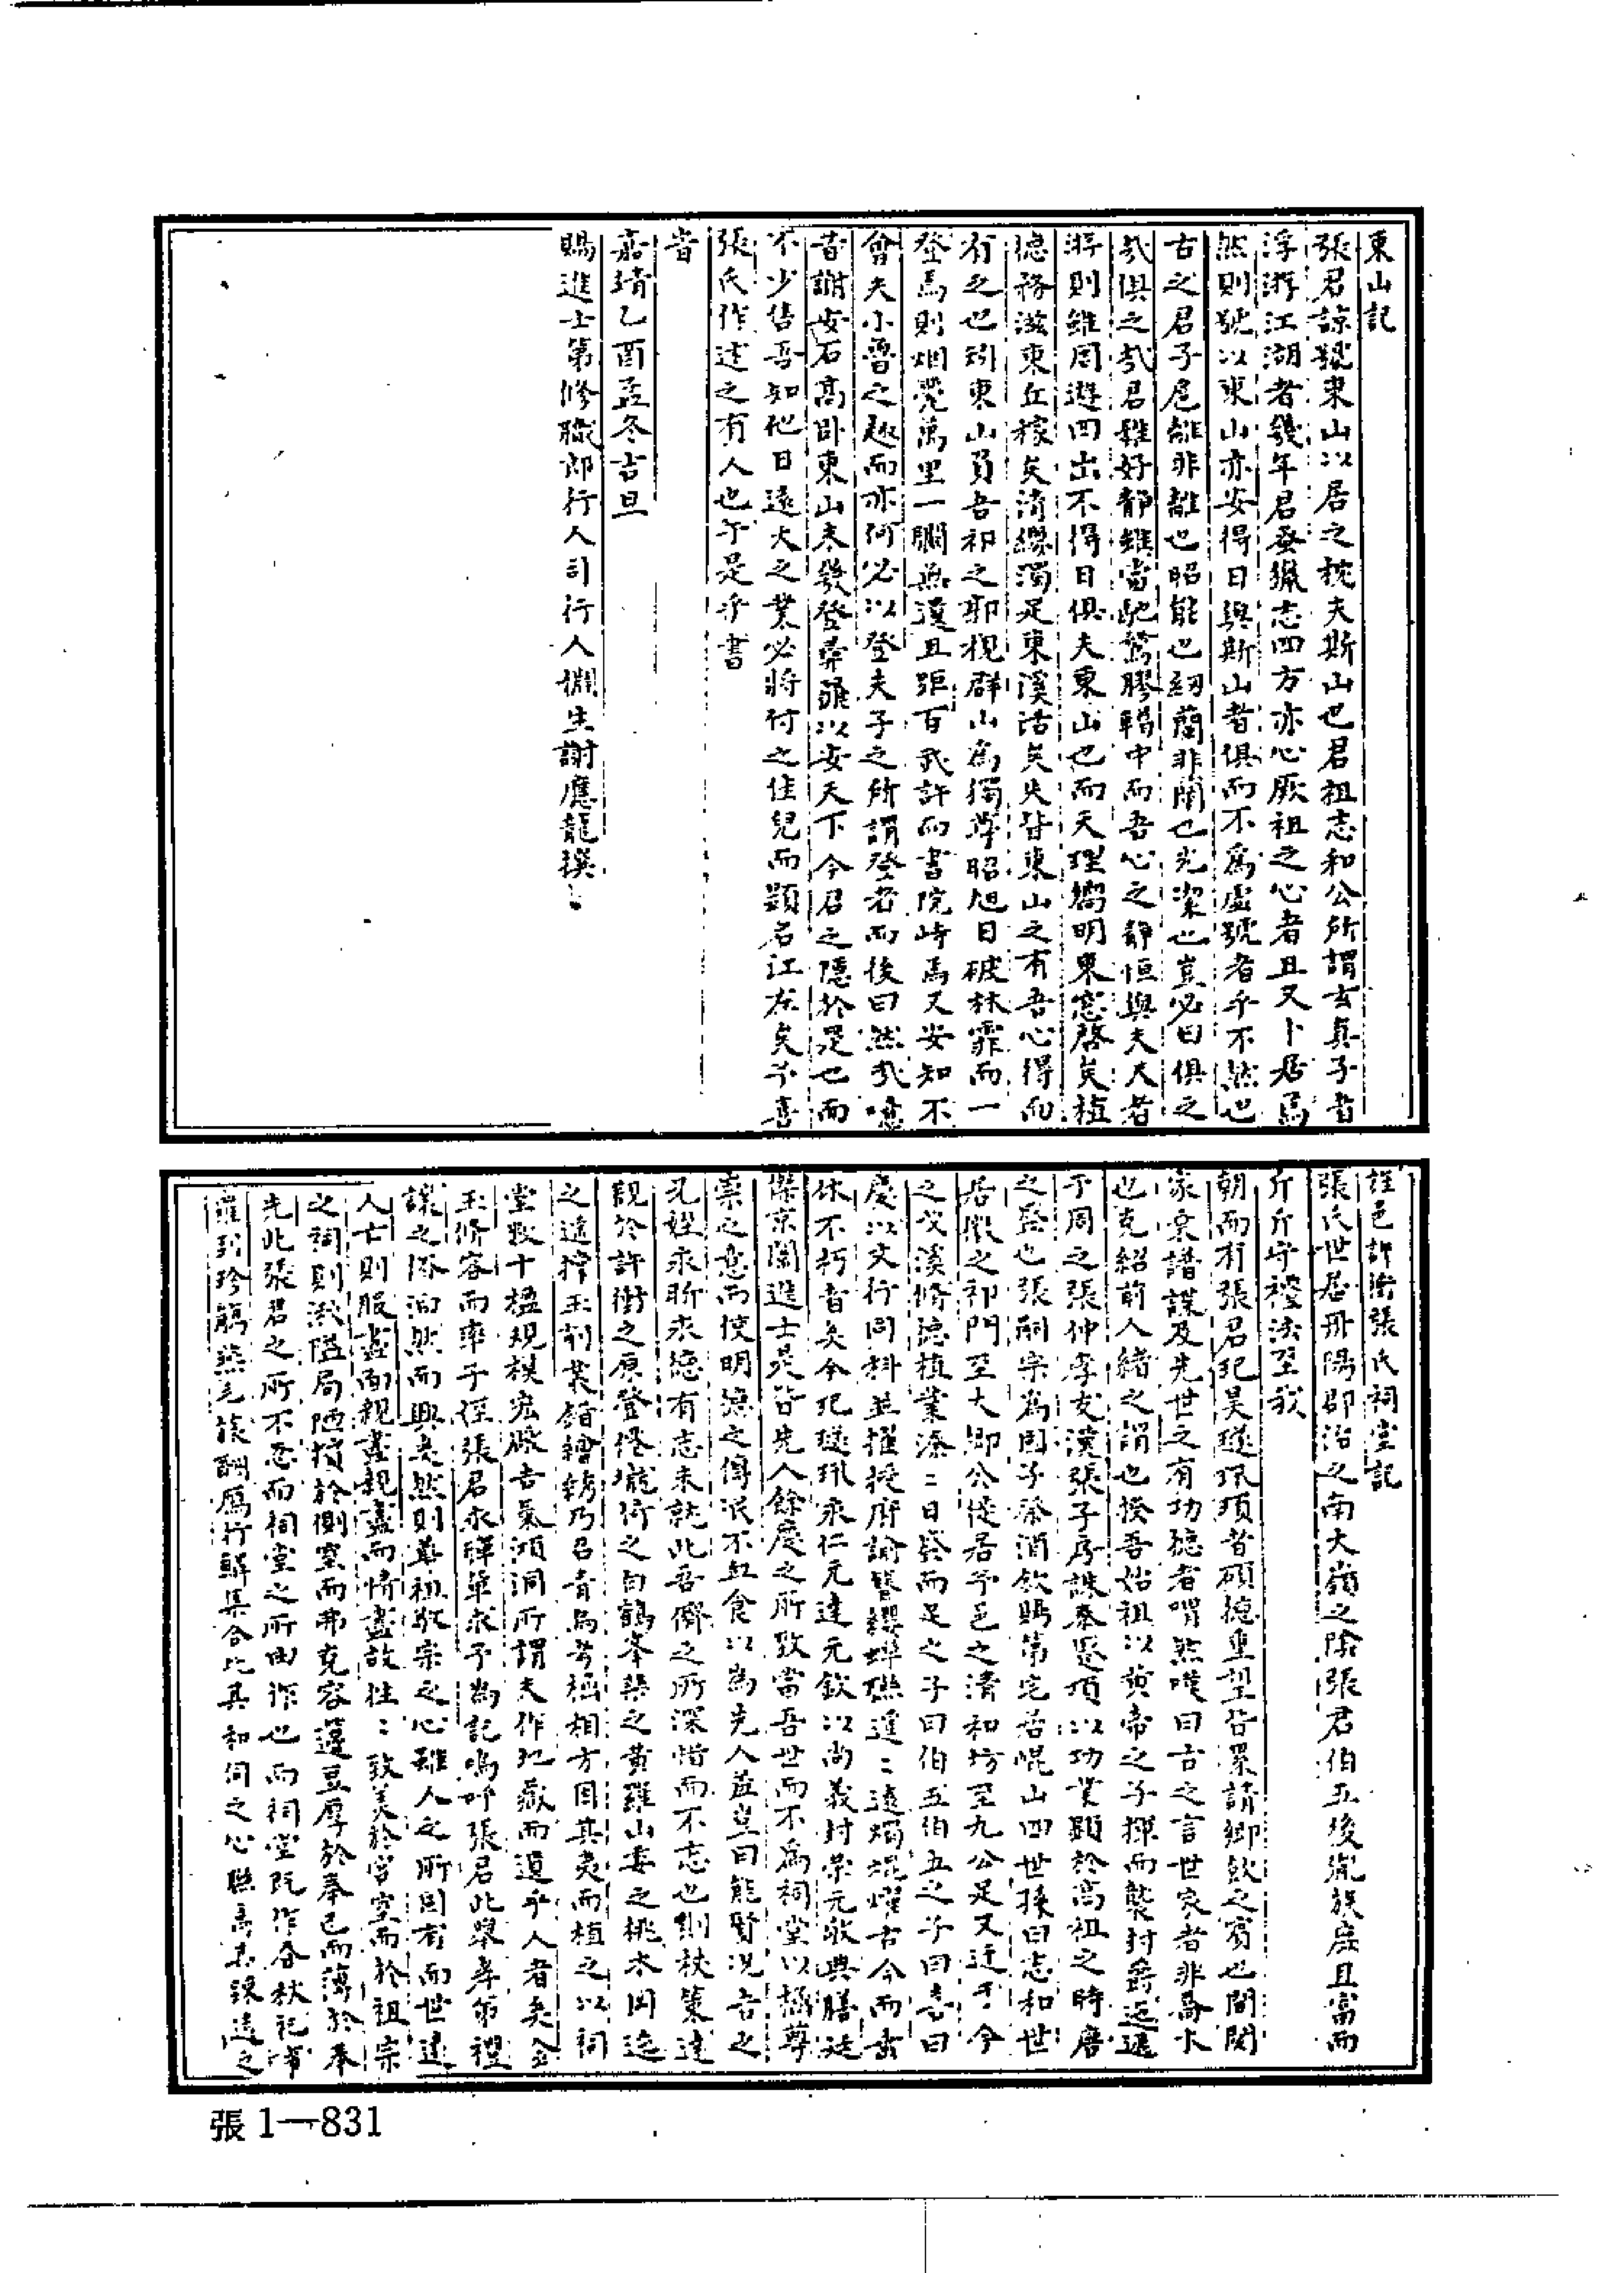 東山記
張君諒號東山以居之枕夫斯山也君祖志和公所謂玄真子者
浮游江湖者幾年君蚤獵志四方亦心厥祖之心者且又卜居焉
然則號以東山亦安得日與斯山者俱而不爲虛號者乎不然也
古之君子扈離非離也昭能也紉蘭非蘭也光潔也豈必曰俱之
哉俱之哉君雖好靜雖當馳騖膠轕中而吾心之靜恒與夫夫者
游則雖周遊四出不得日俱夫東山也而天理牖明東窓啓矣植
德務滋東丘稼矣清纓濁足東溪活矣夫皆東山之有吾心得而
有之也矧東山員吾祁之耶視群山爲獨尊昭旭日破林霏而一
登焉則烟飛萬里一矚無遠且距百武許而書院峙焉又安知不
會夫小魯之趣而亦何必以登夫子之所謂登者而後曰然哉噫
昔謝安石高卧東山未幾登庸雖以安天下今君之隱於是也而
不少售吾知他日遠大之業必將付之佳兒而顯名江左矣予喜
張氏作述之有人也于是乎書
旹
嘉靖乙酉孟冬吉旦
賜進士第修職郎行人司行人淵生謝應龍撰
許衝張氏祠堂記
張氏世居丹陽郡治之南大嶺之陰張君伯五後胤族庶且富而
斤斤守禮法至我
朝而有張君玘昊璲珮頊者碩德重望皆累請鄉飲之賓也間閱
家乘譜諜及先世之有功德者喟然嘆曰古之言世家者非喬木
也克紹前人緒之謂也揆吾始祖以黄帝之子揮而襲封爵迨遞
于周之張仲孝友漢張子房誅秦蹙項以功業顯於高祖之時唐
之盛也張嗣宗爲國子祭酒欽賜第宅居崐山四世孫曰志和世
居徽之祁門至大卿公徙居予邑之清和坊至九公足又迁于今
之戈溪脩德植業添二日盛而足之子曰伯五伯五之子曰
慶以文行同科並擢授府諭簪纓蟬聯進二遠燭焜燿古今而
休不朽者矣今玘璲珮永仁元達元欽以尚義封榮元啟典膳廷
傑京闈進士是皆先人餘慶之所致當吾世而不爲祠堂以極尊
崇之意而使明德之傳泯不血食以爲先人羞豈曰能賢况吾之
兄姪永昕永德有志未就此吾儕之所深惜而不忘也則杖策達
觀於許衝之原登倦壠倚之白鶴峯築之黄羅山委之桃木岡逶
之遠擇王前業錯繪綺乃召青烏考極相方因其夷而植之以祠
堂數十楹規模宏敞吉氣澒洞所謂天作地藏而遺乎人者矣金
玉脩容而率子侄張君永暐單求予爲記嗚呼張君此舉孝弟禮
讓之俗油然而興矣然則尊祖敬宗之心雖人之所固有而世遠
人亡則服盡而親盡親盡而情盡故往二致美於宮室而於祖宗
之祠則湫隘局陋擯於側室而弗克容籩豆厚於奉己而薄於奉
先此張君之所不忍而祠堂之所由作也而祠堂既作春秋祀事
羅列珍觴燕毛旅酬鴈行觶集合比其和同之心聯高其疎遠之
張 1—831